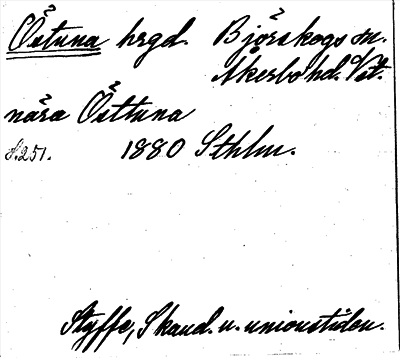 Östuna hrgd. Björskogs sn.
Åkerbo hd. Vstm.
nära Östtuna
s. 251. 1880 Sthlm.
Styffe, Skand. u. unionstiden.